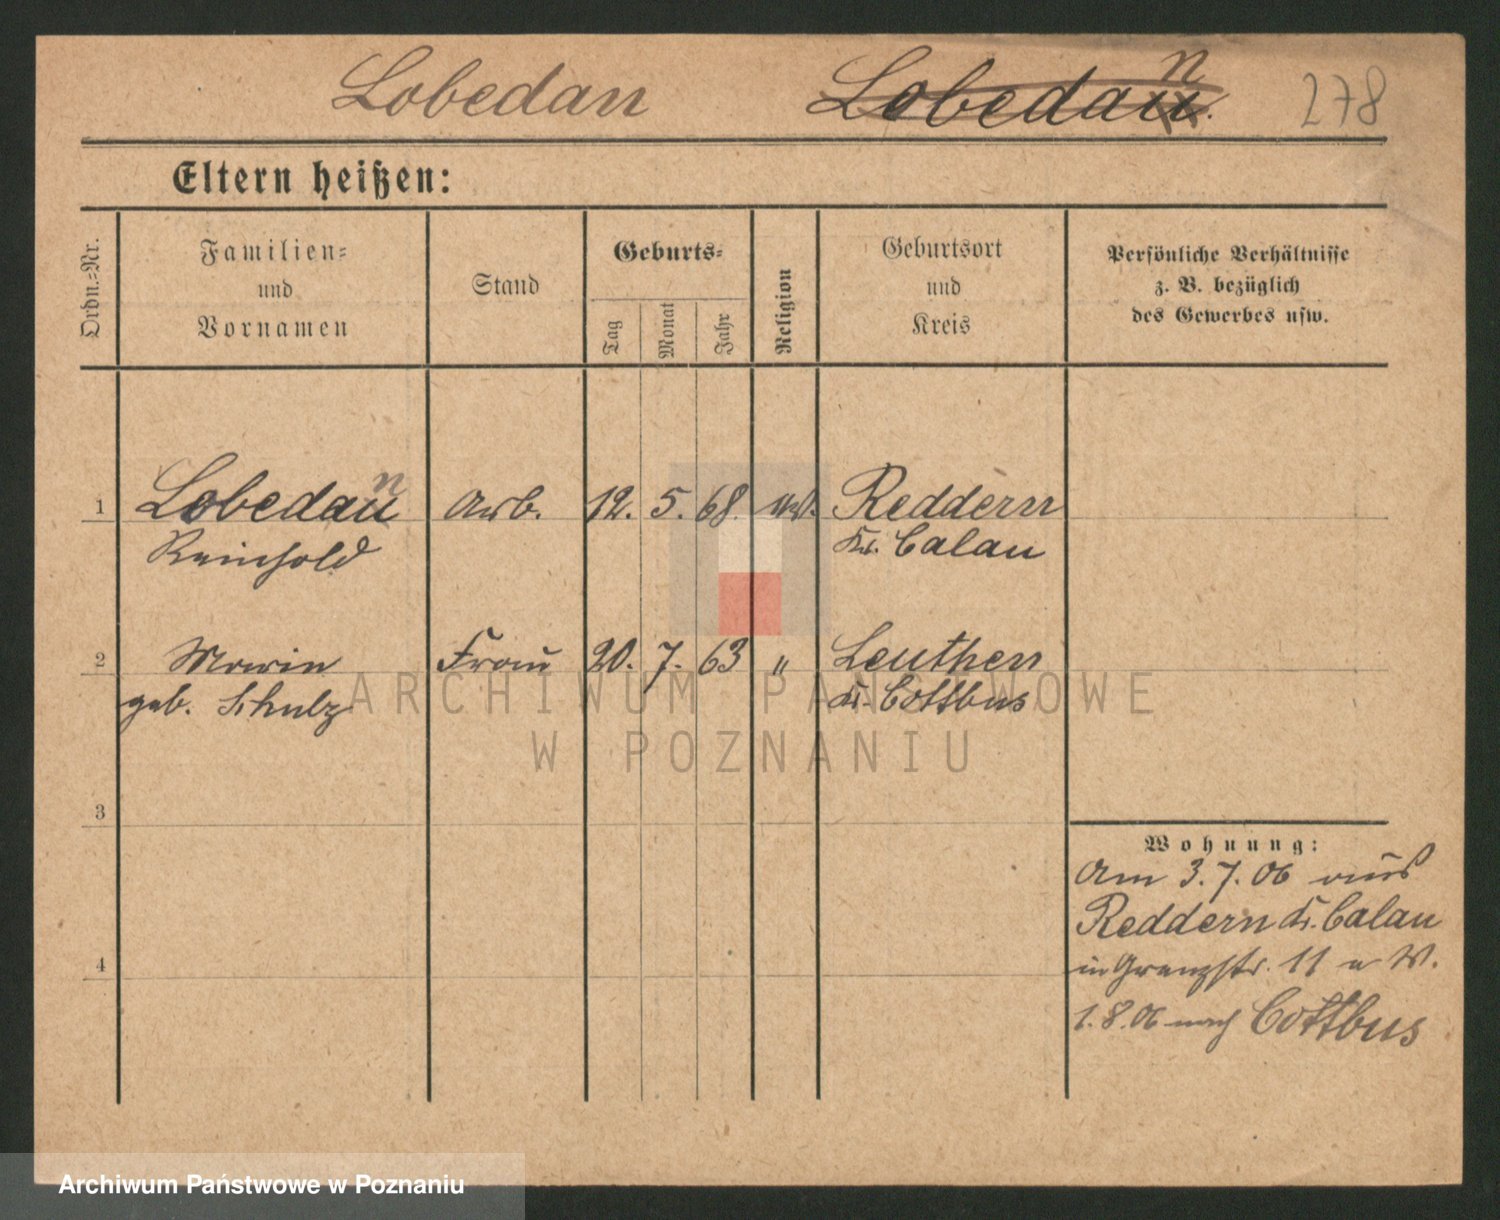 Lobedan Lobedaun. 278
Eltern heißen:
Ordn.-Nr.
Familien-
und
Vornamen
Stand
Geburts-
Tag
Monat
Jahr
Religion
Geburtsort
und
Kreis
Persönliche Verhältnisse
z. B. bezüglich
des Gewerbes usw.
1 Lobedan Arb. 12. 5. 68. ev. Reddern
Reinhold Kr. Calau
2 Marie Frau 20. 7. 63 " Leuthen
geb. Schulz Kr. Cottbus
3
4
Wohnung:
Am 3.7.06 aus
Reddern Kr. Calau
in Grenzstr. 11 a W.
1.8.06 nach Cottbus
ARCHIWUM PAŃSTWOWE
W POZNANIU
Archiwum Państwowe w Poznaniu